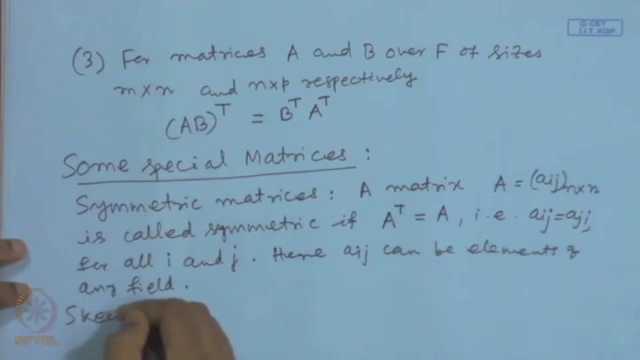 © CET
I.I.T. KGP
(3) For matrices A and B over F of sizes
m×n and n×p respectively
(AB)^T = B^T A^T
Some special Matrices :
Symmetric matrices : A matrix A = (aij)n×n
is called symmetric if A^T = A, i.e. aij = aji,
for all i and j. Here aij can be elements of
any field.
Skew
NPTEL